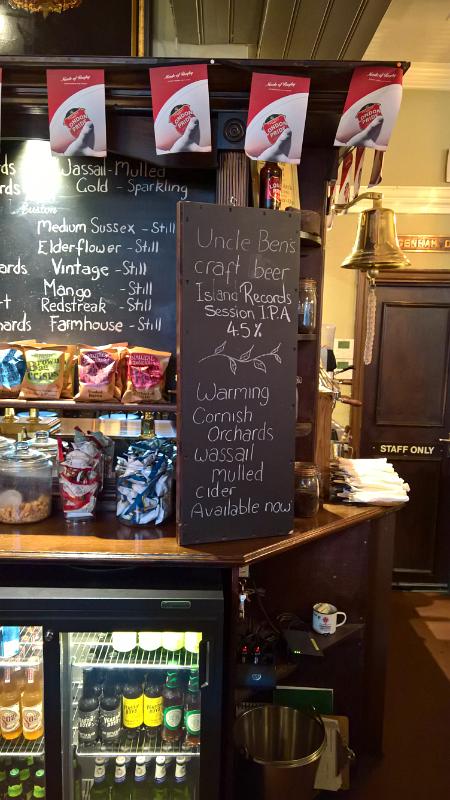 Made of Rugby
Made of Rugby
Made of Rugby
Made of Rugby
LONDON PRIDE
LONDON PRIDE
LONDON PRIDE
LONDON PRIDE
Wassail-Mulled
Gold - Sparkling
Medium Sussex - Still
Elderflower - Still
Vintage - Still
Mango - Still
Redstreak - Still
Farmhouse - Still
Uncle Ben's
craft beer
Island Records
Session I.P.A
4.5%
Warming
Cornish
Orchards
Wassail
mulled
cider
Available now
STAFF ONLY